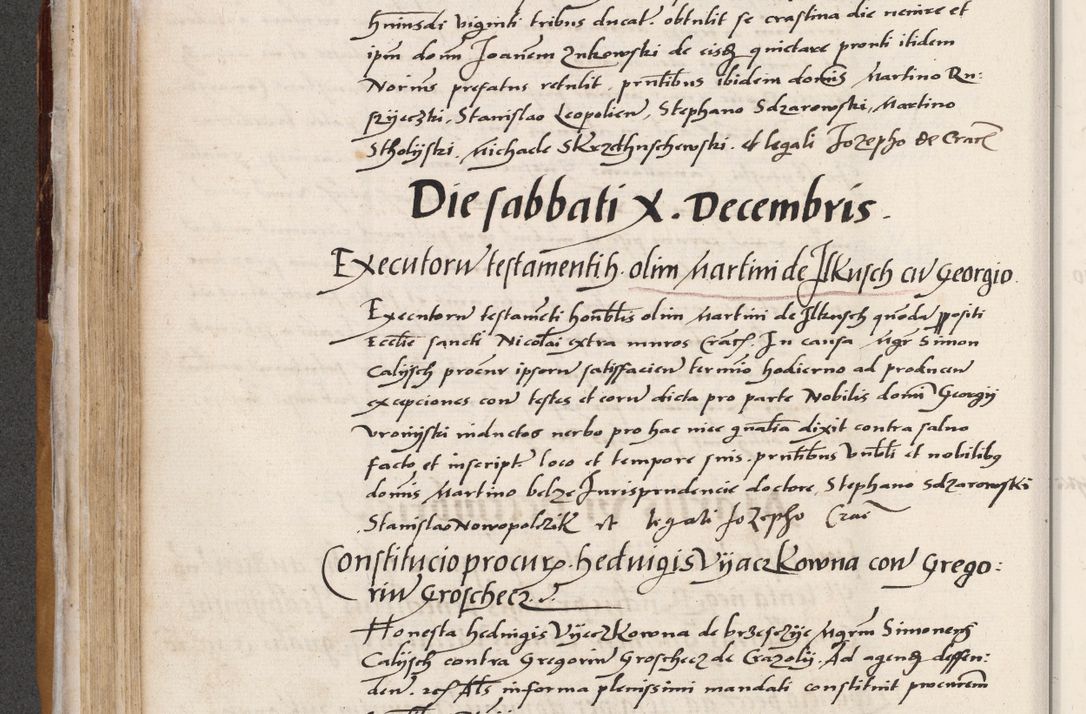 huiusdi viginti tribus ducat. obtulit se crastina die venire et
ipm domi Joanem Zukowski de eisq quietare pronti itidem
Norius prefatus retulit. pntibus ibidem domis Martino Ru:
szyeczki, Stanislao Leopolien, Stephano Sdzarowski, Martino
Stholyski, Michaele Skrzethuschewski. et legali Jozepho de Crac
Die sabbati X. Decembris.
Executoru testamenti h. olim Martini de Ilkusch cu Georgio.
Executoru testamenti honblis olim Martini de Ilkusch quoda ppositi
Ecclie sancti Nicolai extra muros Crac. In causa Mgr Simon
Calysch procur ipsoru satisfacien termio hodierno ad producen
excepciones con testes et eoru dicta pro parte Nobilis domi Georgii
Vromyski inductos verbo pro hac vice gnalia dixit contra salvo
facto et inscript. loco et tempore suis. pntibus Vnbli et nobilibq
domis Martino belze Jurisprudencie doctore, Stephano Sdzarowski
Stanislao Nowopolzik et legali Jozepho Crac
Constitucio procur. heduigis Vyaczkowna con Grego:
riu Groschecz.
Honesta heduigis Vyeczkowna de brzesczye Mgrm Simonem
Calysch contra Gregoriu Groschecz de Crazoly. Ad agenq deffen:
den. rcf Als in forma plenissimi mandati constituit procurem